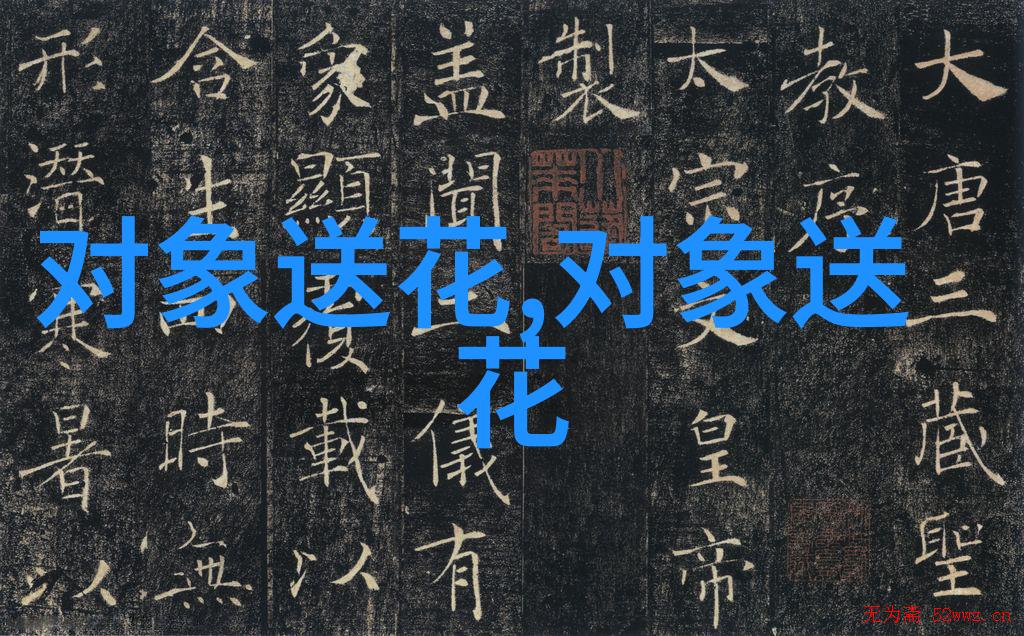 对象送花,对象送
花
大唐三蔵聖
教序
太宗文皇帝
製
盖聞二儀有
象顯覆載以
含生四時無
形潛寒暑以
无为斋 52wwz.cn